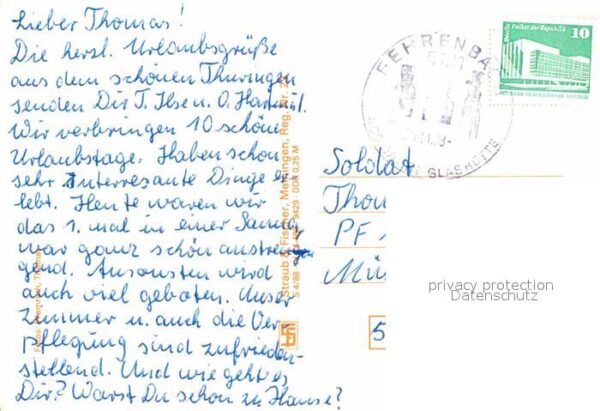 Lieber Thomas!
Die herzl. Urlaubsgrüße
aus dem schönen Thüringen
senden Dir T. Ilse u. O. Hartmut.
Wir verbringen 10 schöne
Urlaubstage. Haben schon
sehr interresante Dinge er
lebt. Heute waren wir
das 1. mal in einer Sauna,
war ganz schön anstren
gend. Ansonsten wird
auch viel geboten. Unser
Zimmer u. auch die Ver
pflegung sind zufrieden-
stellend. Und wie geht es
Dir? Warst Du schon zu Hause?
Straub & Fischer, Meiningen, Reg. Nr. 2
S 4/88 9429 DDR 0,25 M
FEHRENBA
GLASHÜTTE
Berlin Palast der Republik
10
Soldat
Thom
PF
5
privacy protection
Datenschutz